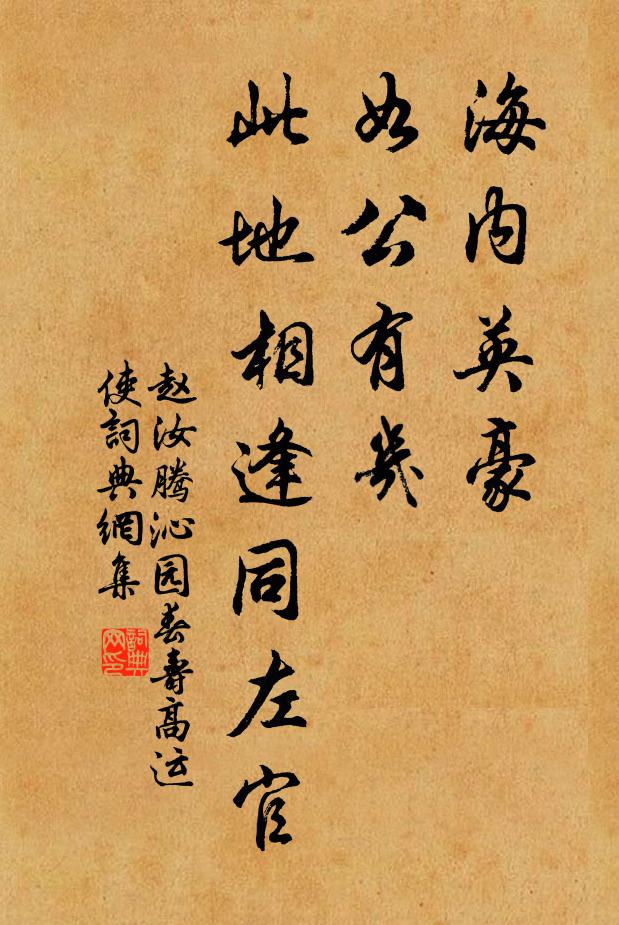 海内英豪
如公有幾
此地相逢同左官
赵汝腾沁园春壽高运
使詞典網集
詞典
网印